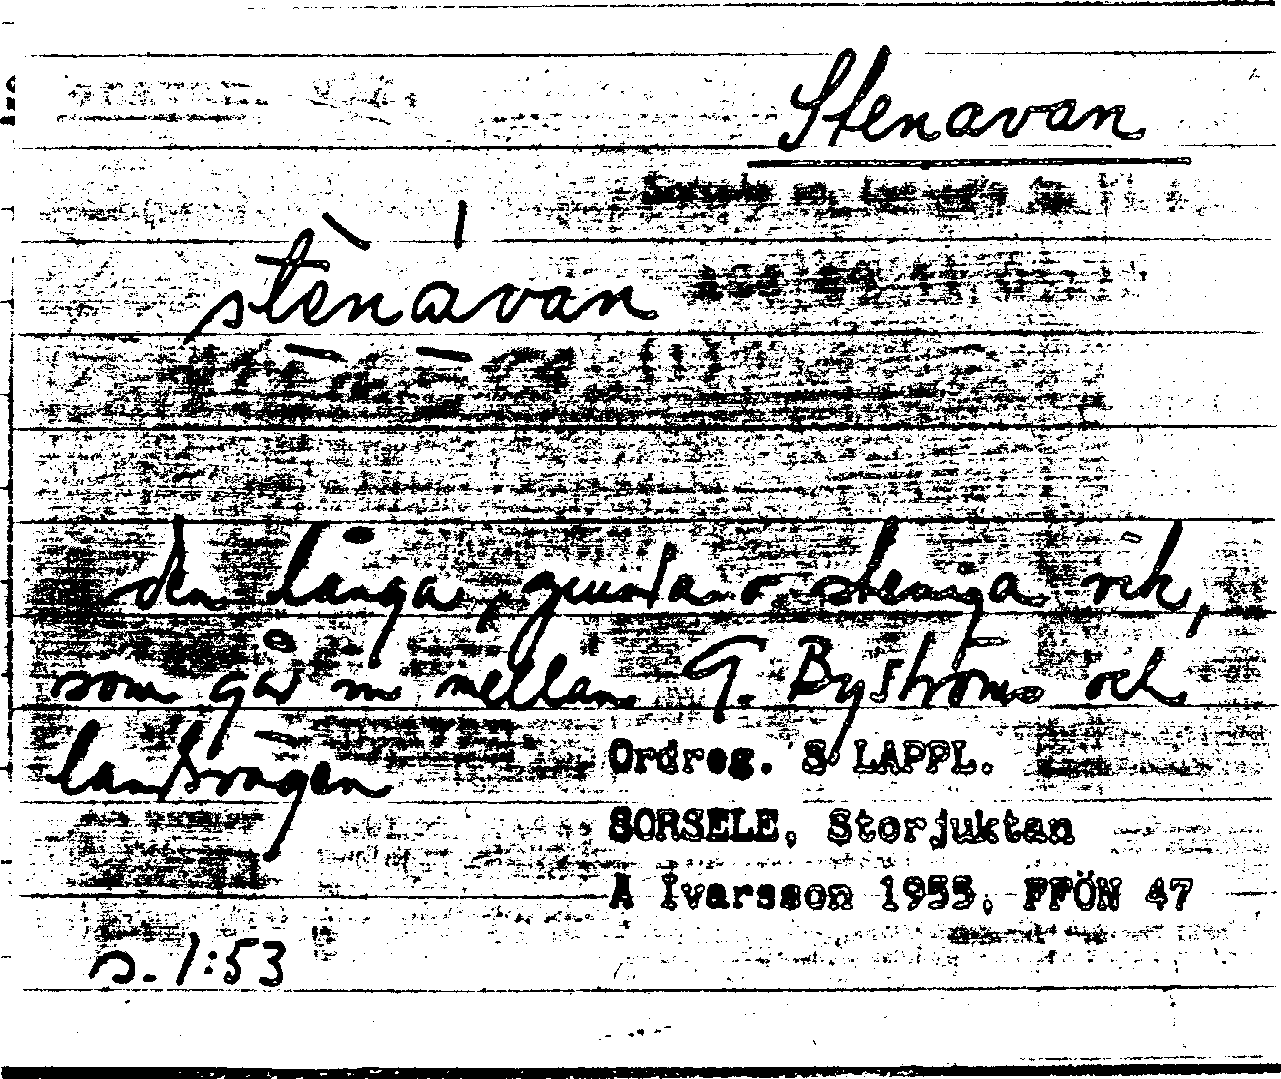 Stenavan
stènávan
den långa, grunda o steniga vik,
som går in mellan G. Byströms och
landsvägen
Ordreg. S LAPPL.
SORSELE, Storjuktan
A Ivarsson 1955, FFÖN 47
s. 1:53